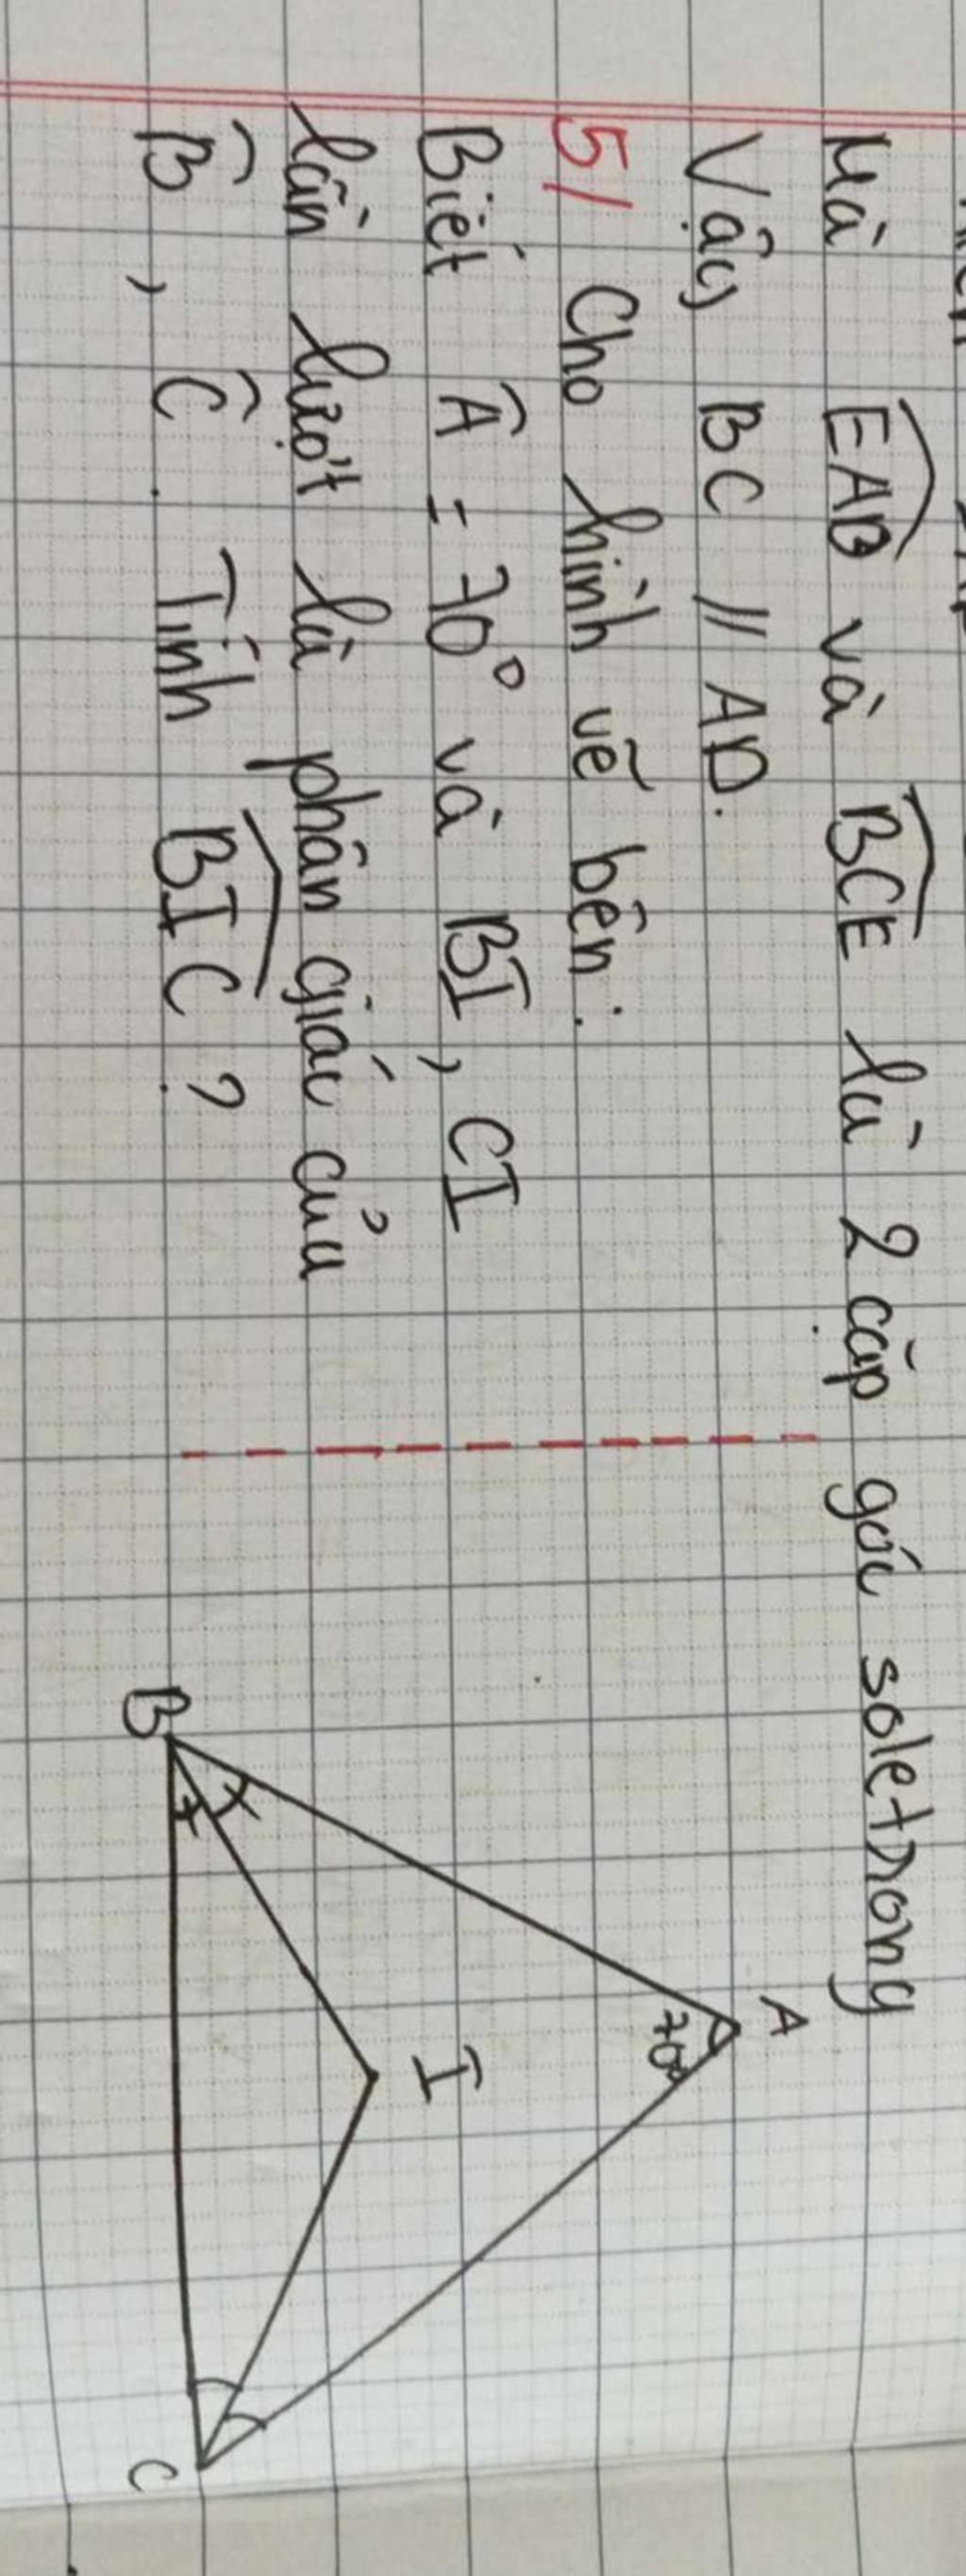 Mà EAD và BCE là 2 cặp góc soletrong
Vậy BC // AD.
5/ Cho hình vẽ bên:
Biết Â = 70° và BI, CI
lần lượt là phân giác của
B̂, Ĉ. Tính BIC?
A
70°
I
B
C